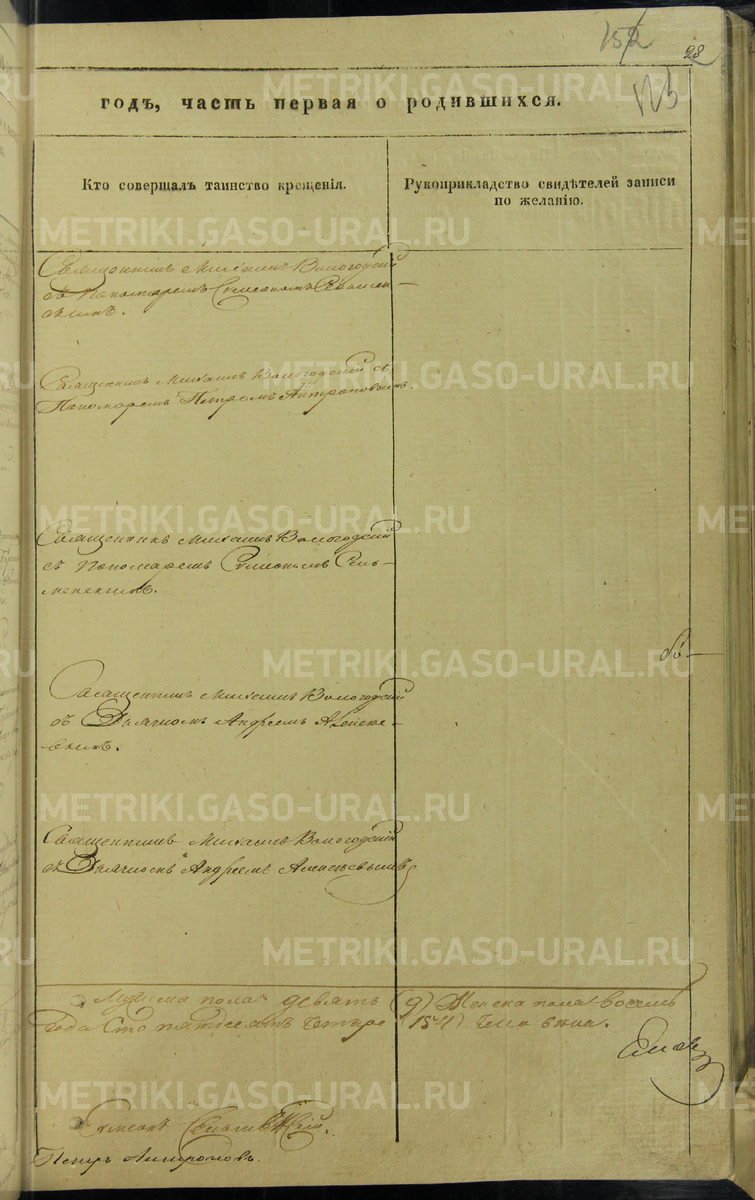 152
28
годъ, часть первая о родившихся.
Кто совершалъ таинство крещенія.
Рукоприкладство свидѣтелей записи
по желанію.
METRIKI.GASO-URAL.RU
Священникъ Михаилъ Вологодскій
съ Пономаремъ Симеономъ
Священникъ Михаилъ Вологодскій съ
Пономаремъ Петромъ Антроповымъ.
Священникъ Михаилъ Вологодскій
съ Пономаремъ Симеономъ
Священникъ Михаилъ Вологодскій
съ Дьячкомъ Андреемъ Алексе-
евымъ.
Священникъ Михаилъ Вологодскій
съ Дьячкомъ Андреемъ Алексеевымъ
Мужеска пола девять (9) Женска пола восемь
года Сто пятдесятъ четыре (154) человека.
Симеонъ
Петръ Антроповъ.